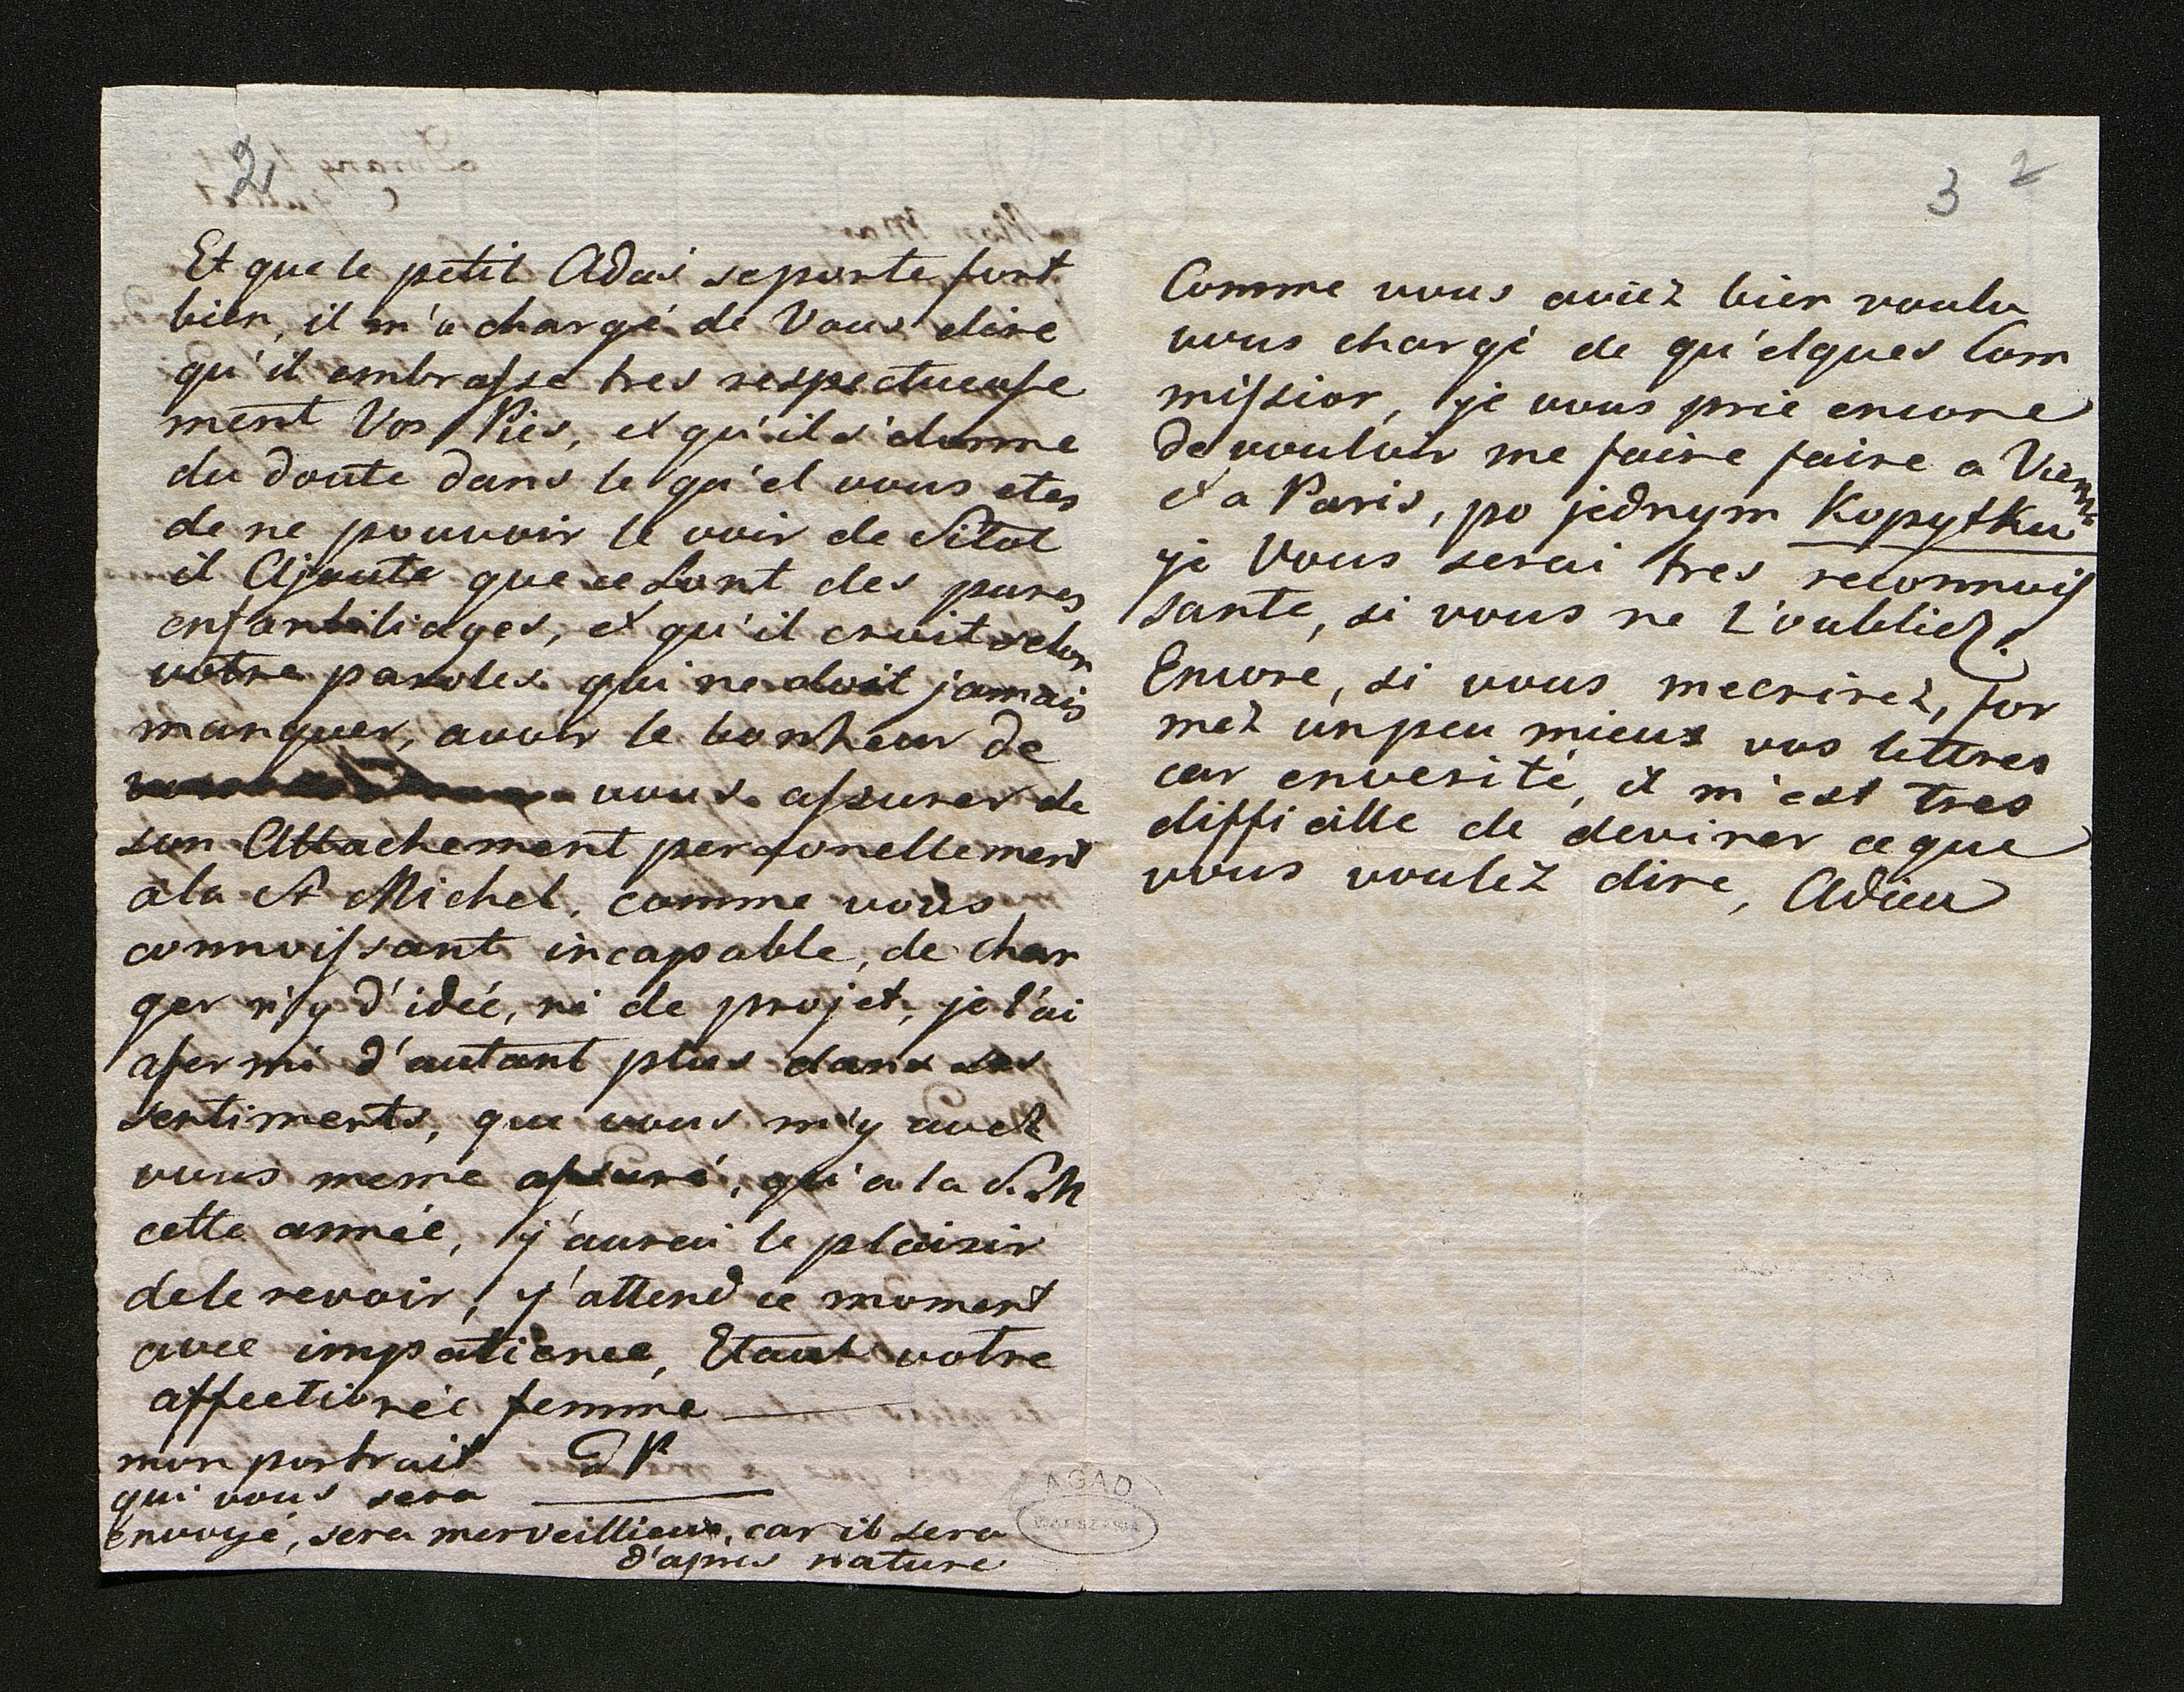 2
Et que le petit Adas se porte fort
bien, il m'a chargé de Vous dire
qu'il embrasse tres respectueuse
ment Vos Pies, et qu'il s'etonne
du doute dans le qu'el vous etes
de ne pouvoir le voir de Sitot
il Ajoute que ce Sont des pures
enfantiliages, et qu'il croit selon
votre paroles qui ne doit jamais
manquer, avoir le bonheur de
vous assurer de
son Attachement personellement
a la St Michel. comme vous
connoissant incapable, de chan
ger n'y d'idée, ni de projet, je l'ai
afermi d'autant plus dans ses
sentiments, que vous m'y avez
vous meme assuré, qu'a la S. M
cette année, j'aurai le plaisir
de le revoir, j'attend ce moment
avec impatience, Etant votre
affectionée femme
mon portrait
qui vous sera
envoyé, sera merveillieux, car il sera
d'apres nature
3 2
Comme vous aviez bien voulu
vous chargé de qu'elques Com
mission, je vous prie encore
de vouloir me faire faire a Vienne
et a Paris, po jednym Kopytku
je Vous serai tres reconnois
sante, si vous ne l'oubliez.
Encore, si vous mecrirez, for
mez un peu mieux vos lettres
car enverité, il m'est tres
difficille de deviner ce que
vous voulez dire, Adieu
AGAD
WARSZAWA